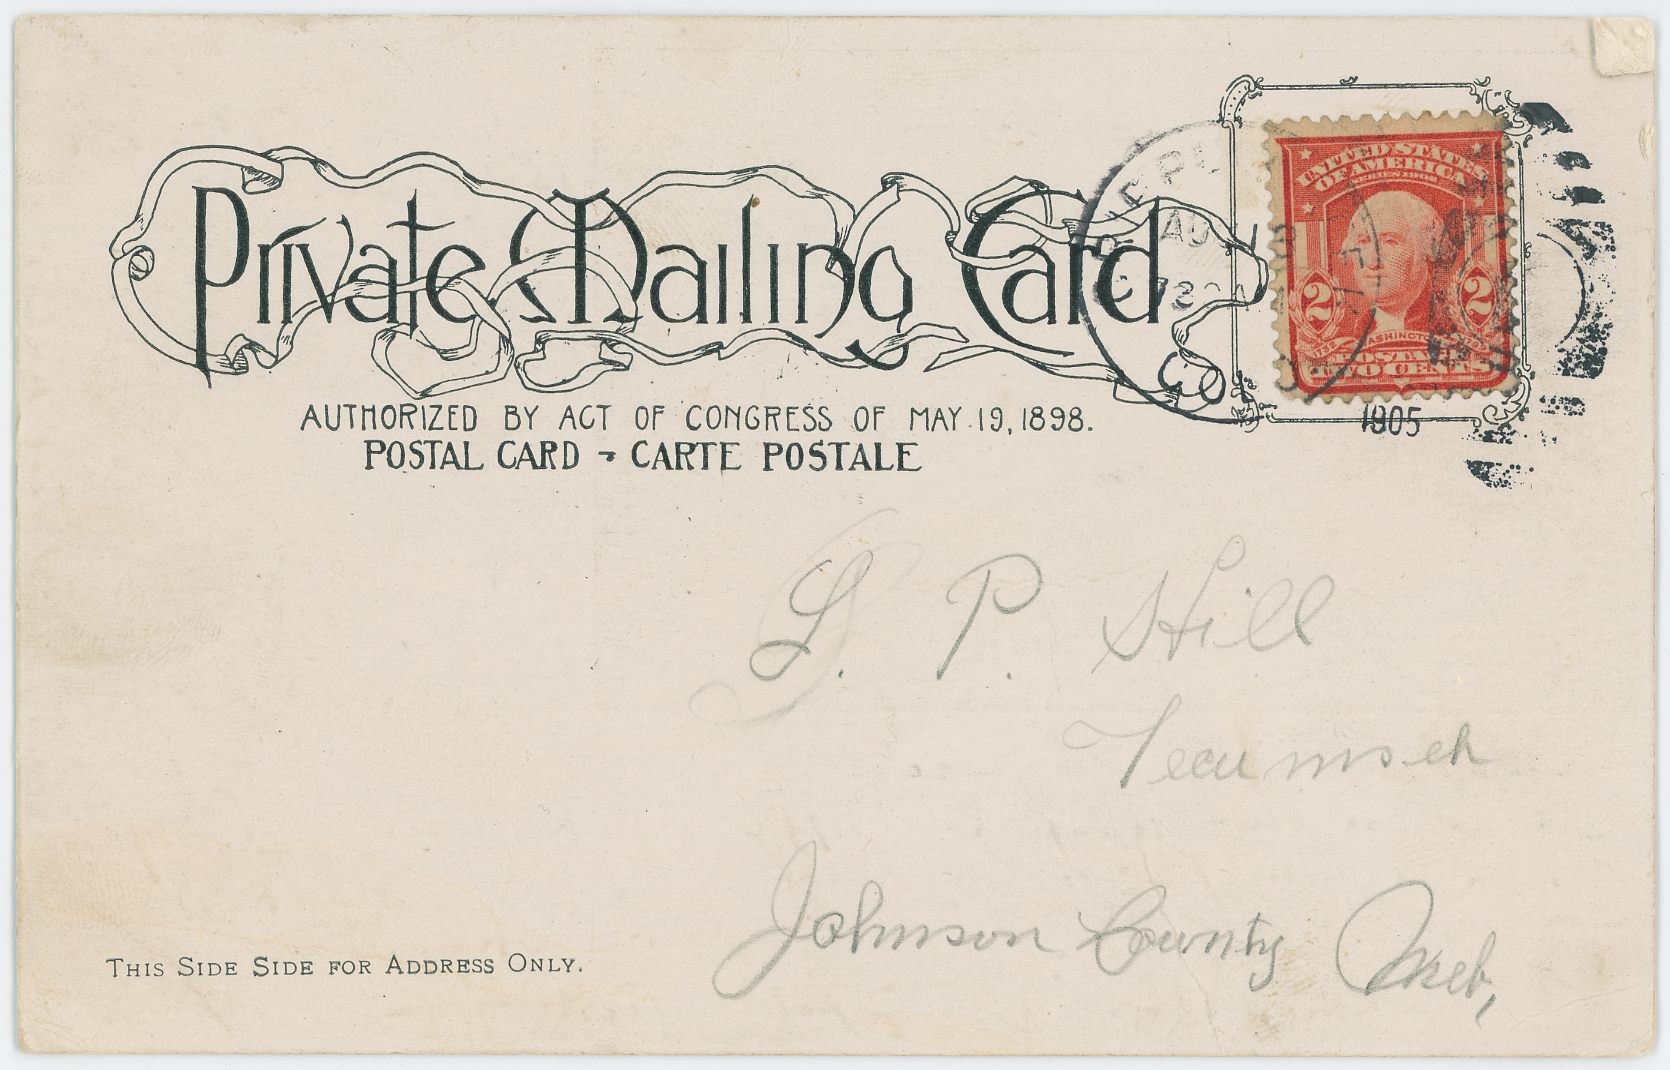 Private Mailing Card
AUTHORIZED BY ACT OF CONGRESS OF MAY 19, 1898.
POSTAL CARD - CARTE POSTALE
UNITED STATES
OF AMERICA
SERIES 1902
2 2
WASHINGTON
POSTAGE
TWO CENTS
1905
L. P. Hill
Tecumseh
Johnson County Neb,
THIS SIDE SIDE FOR ADDRESS ONLY.